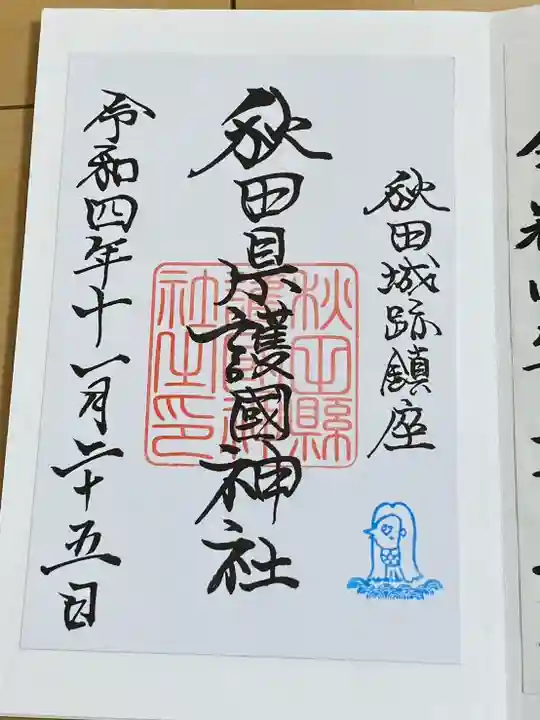 秋田城跡鎮座
秋田県護國神社
秋田縣
社之印
令和四年十一月二十五日